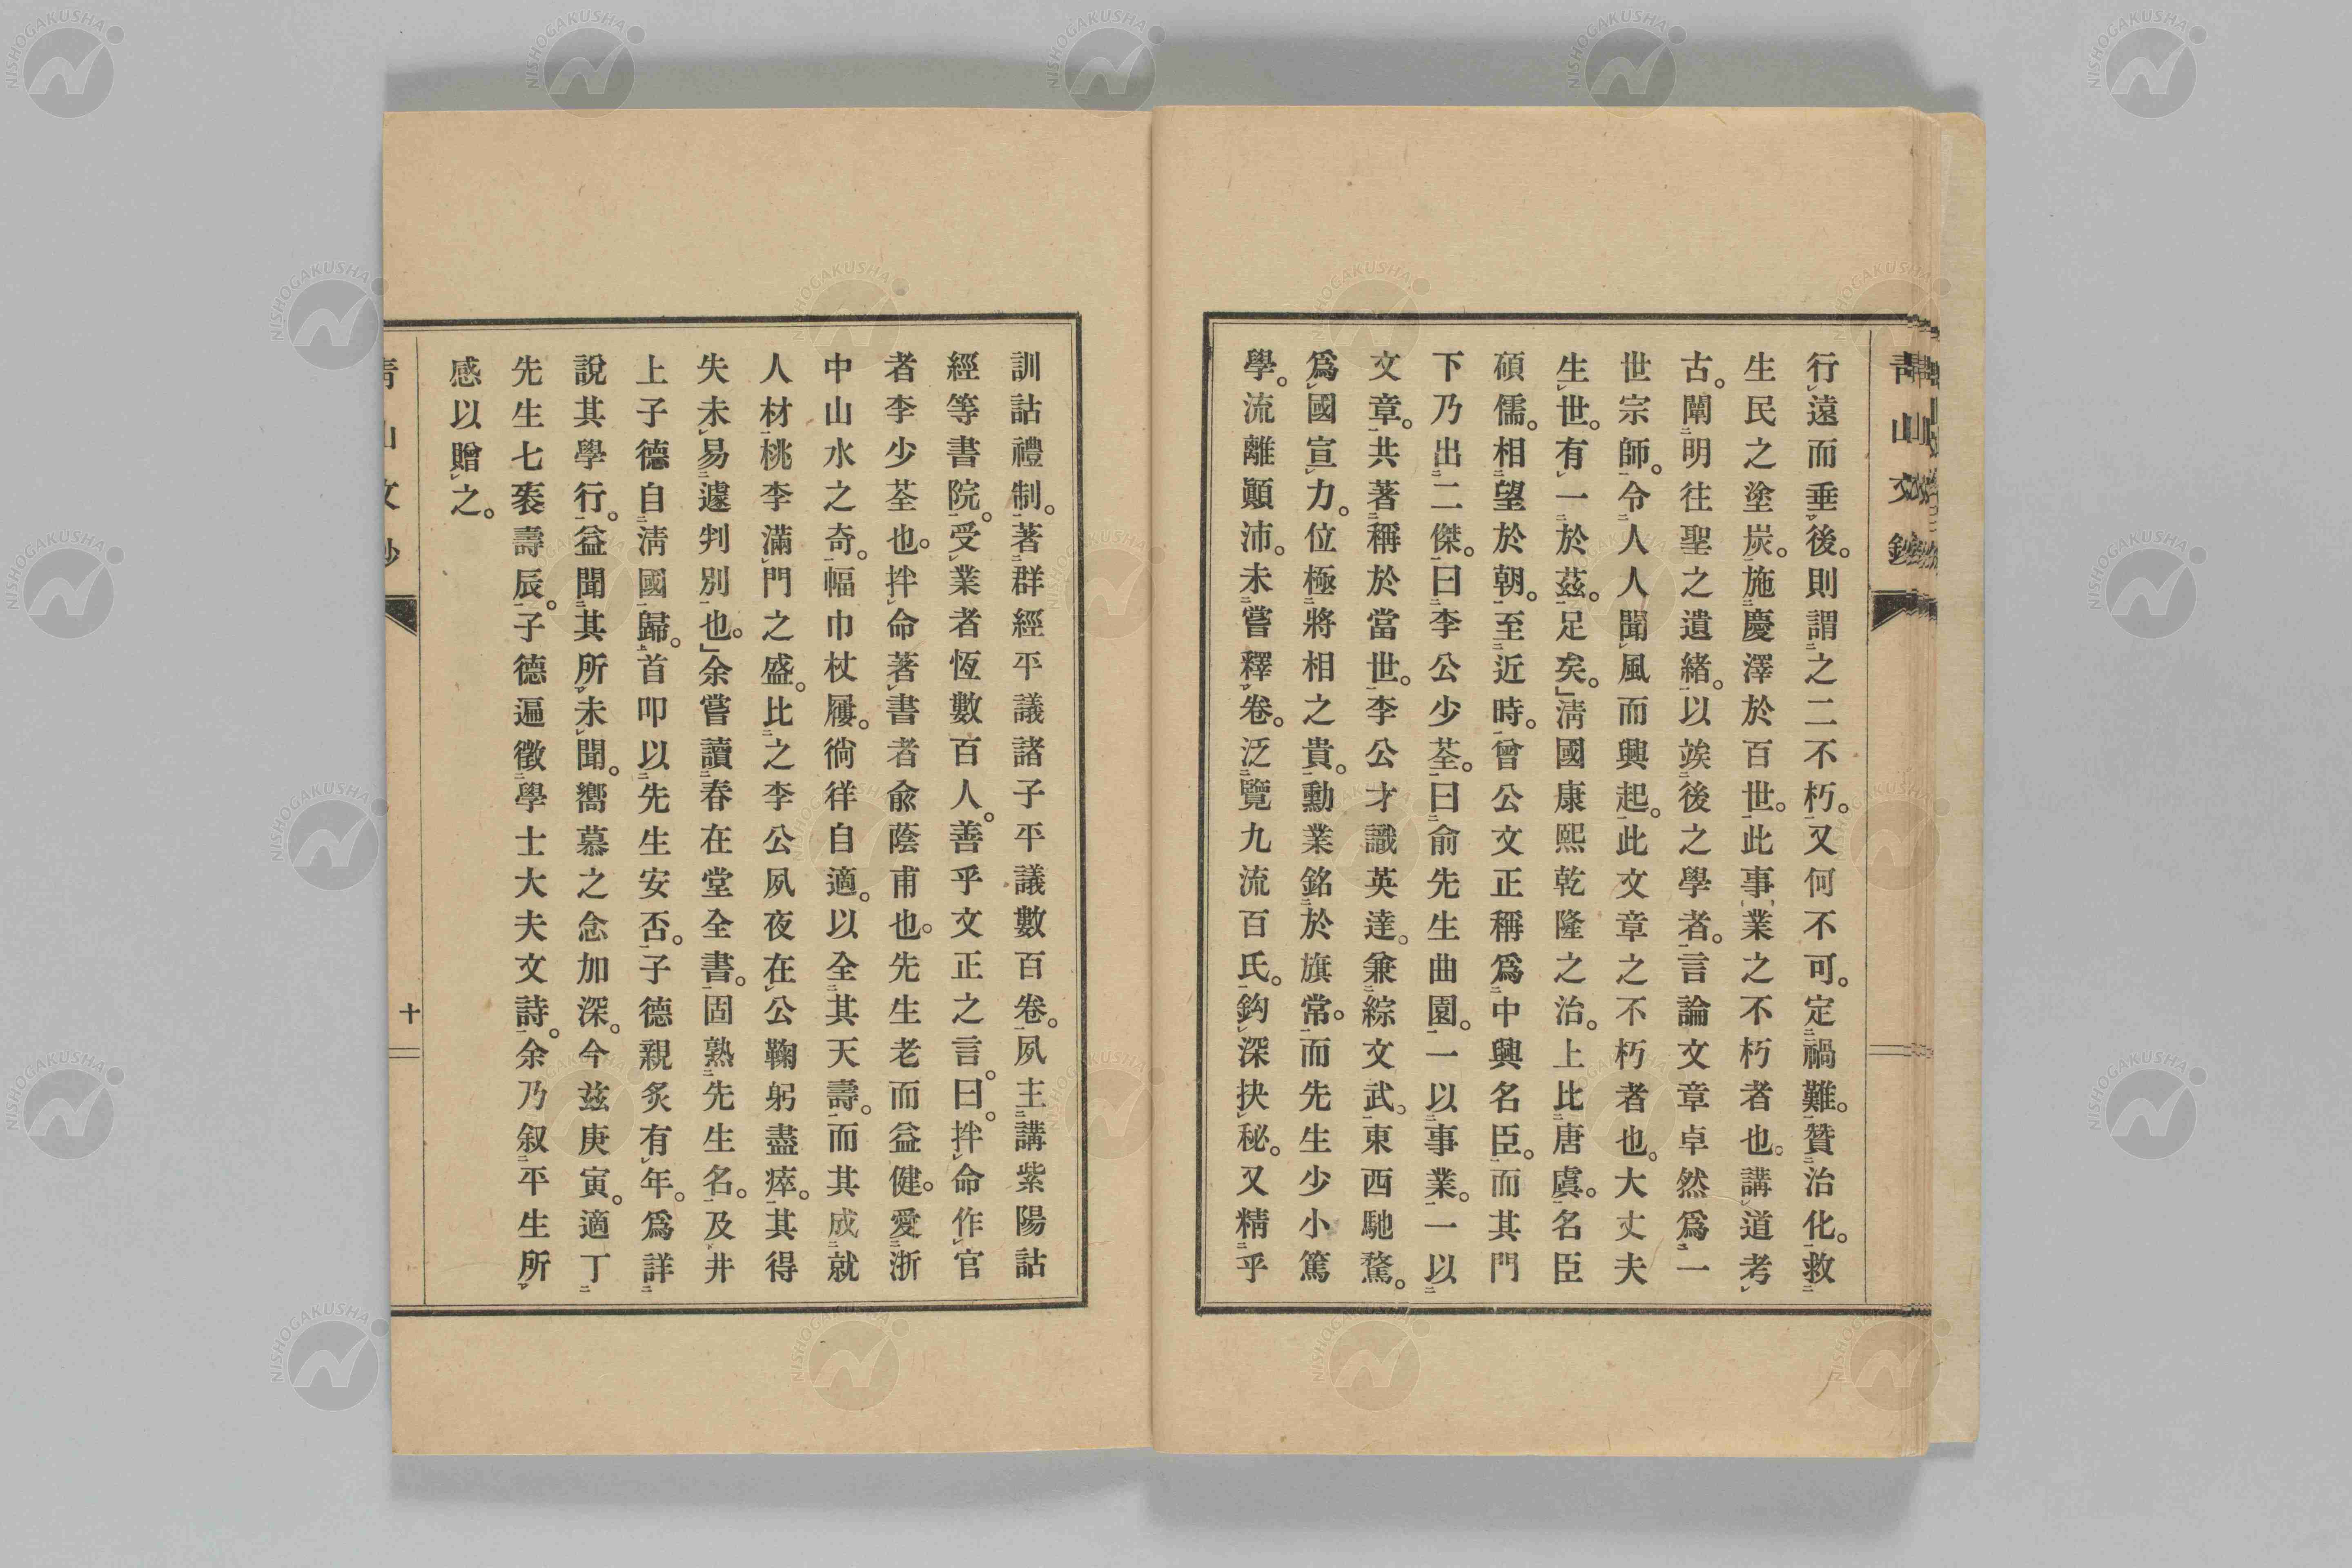 青山文鈔
行遠而垂後。則謂之二不朽。又何不可。定禍難。贊治化。救
生民之塗炭。施慶澤於百世。此事業之不朽者也。講道考
古。闡明往聖之遺緒。以竢後之學者。言論文章卓然爲一
世宗師。令人人聞風而興起。此文章之不朽者也。大丈夫
生世。有一於茲。足矣。」淸國康熙乾隆之治。上比唐虞。名臣
碩儒。相望於朝。至近時。曾公文正稱爲中興名臣。而其門
下乃出二傑。曰李公少荃。曰俞先生曲園。一以事業。一以
文章。共著稱於當世。李公才識英達。兼綜文武。東西馳騖。
爲國宣力。位極將相之貴。勳業銘於旗常。而先生少小篤
學。流離顚沛。未嘗釋卷。泛覽九流百氏。鈎深抉秘。又精乎
訓詁禮制。著群經平議諸子平議數百卷。夙主講紫陽詁
經等書院。受業者恆數百人。善乎文正之言。曰。拌命作官
者李少荃也。拌命著書者兪蔭甫也。先生老而益健。愛浙
中山水之奇。幅巾杖屨。徜徉自適。以全其天壽。而其成就
人材。桃李滿門之盛。比之李公夙夜在公鞠躬盡瘁。其得
失未易遽判別也。」余嘗讀春在堂全書。固熟先生名。及井
上子德自淸國歸。首叩以先生安否。子德親炙有年。爲詳
說其學行。益聞其所未聞。嚮慕之念加深。今茲庚寅。適丁
先生七袠壽辰。子德逼徵學士大夫文詩。余乃叙平生所
感以贈之。
靑山文鈔
十
NISHOGAKUSHA